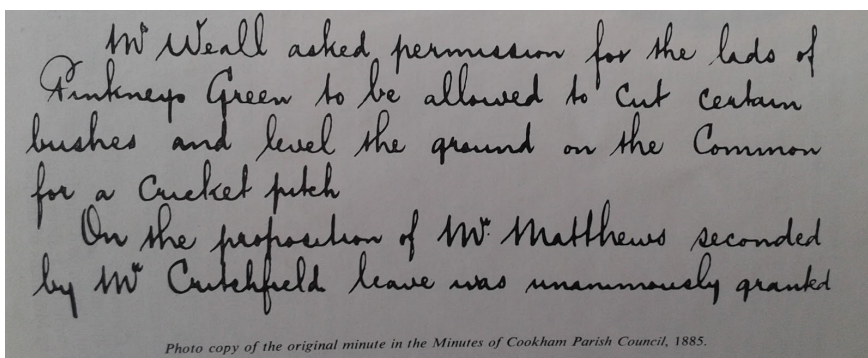 Mr Weall asked permission for the lads of
Pinkneys Green to be allowed to cut certain
bushes and level the ground on the Common
for a Cricket pitch
On the proposition of Mr. Matthews seconded
by Mr Crutchfield leave was unanimously granted
Photo copy of the original minute in the Minutes of Cookham Parish Council, 1885.